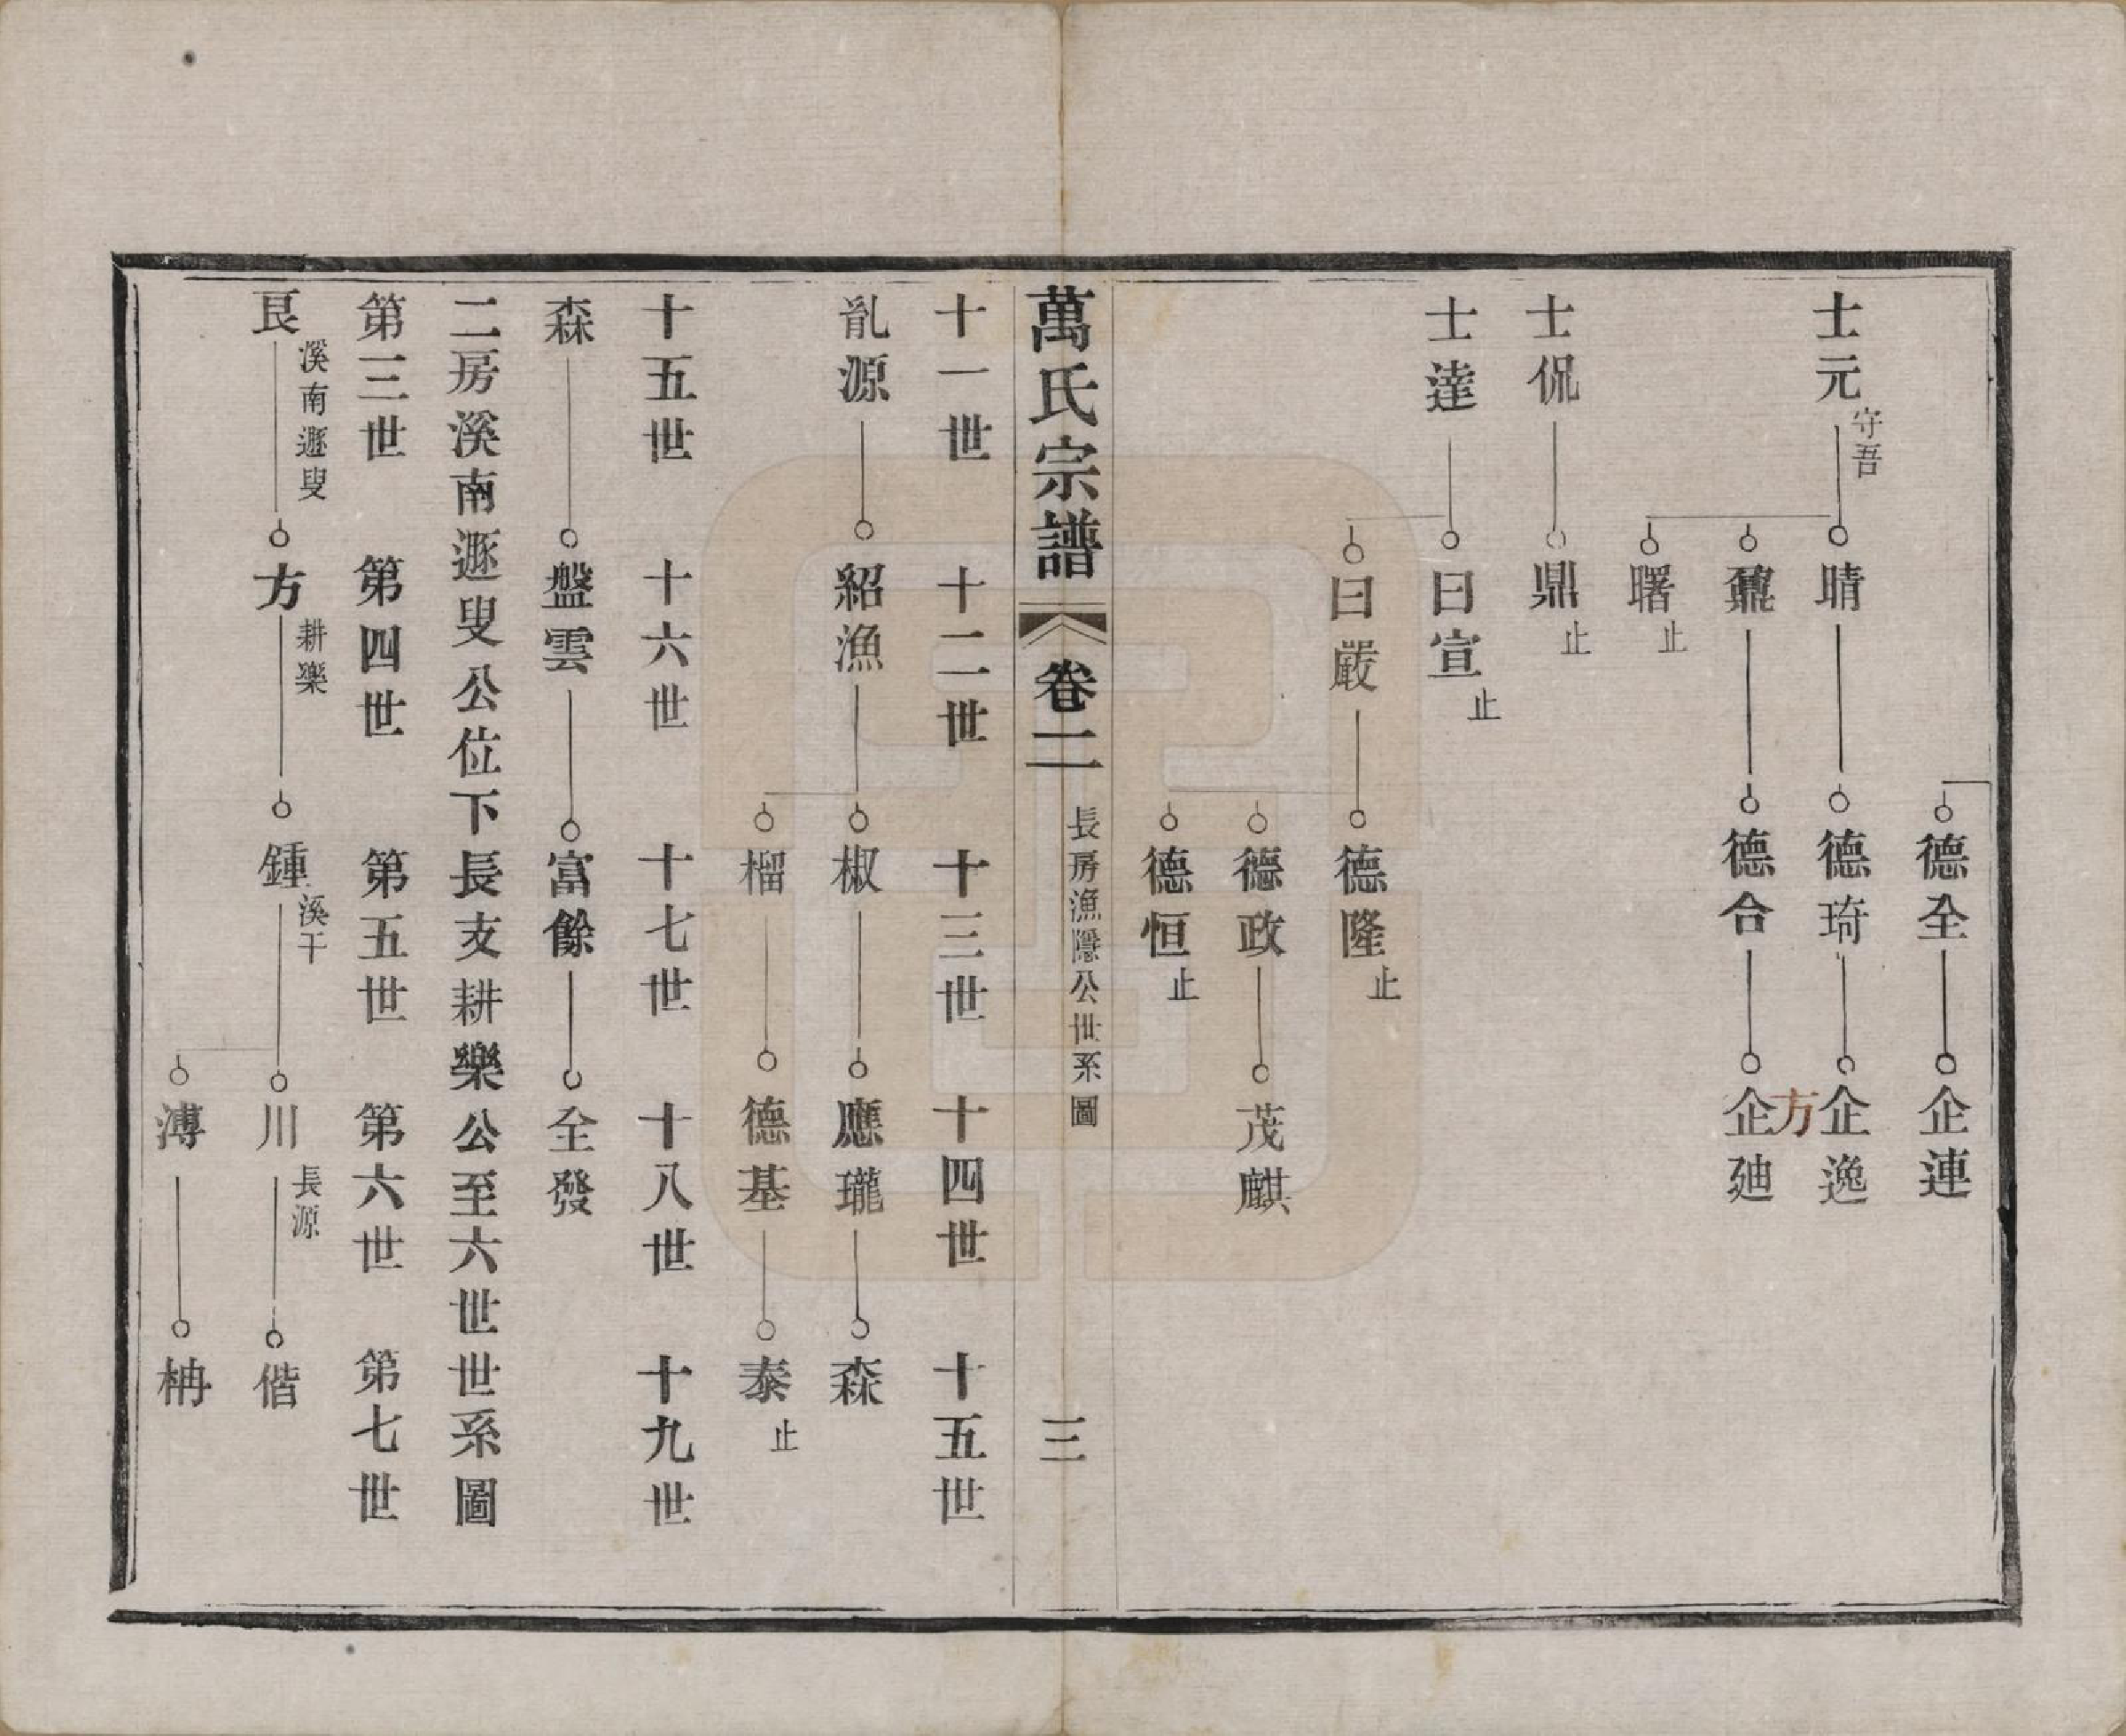 德全 企連
士元 守吾 晴 德琦 企逸
方
鼐 德合 企廸
曙 止
士侃 鼎 止
士達 曰宣 止
曰嚴 德隆 止
德政 茂麒
德恒 止
萬氏宗譜 卷二 長房漁隱公世系圖 三
十一世 十二世 十三世 十四世 十五世
亂源 紹漁 椒 應瓏 森
榴 德基 泰 止
十五世 十六世 十七世 十八世 十九世
森 盤雲 富餘 全發
二房溪南遯叟公位下長支耕樂公至六世世系圖
第三世 第四世 第五世 第六世 第七世
艮 溪南遯叟 方 耕樂 鍾 溪干 川 長源 偕
溥 柟